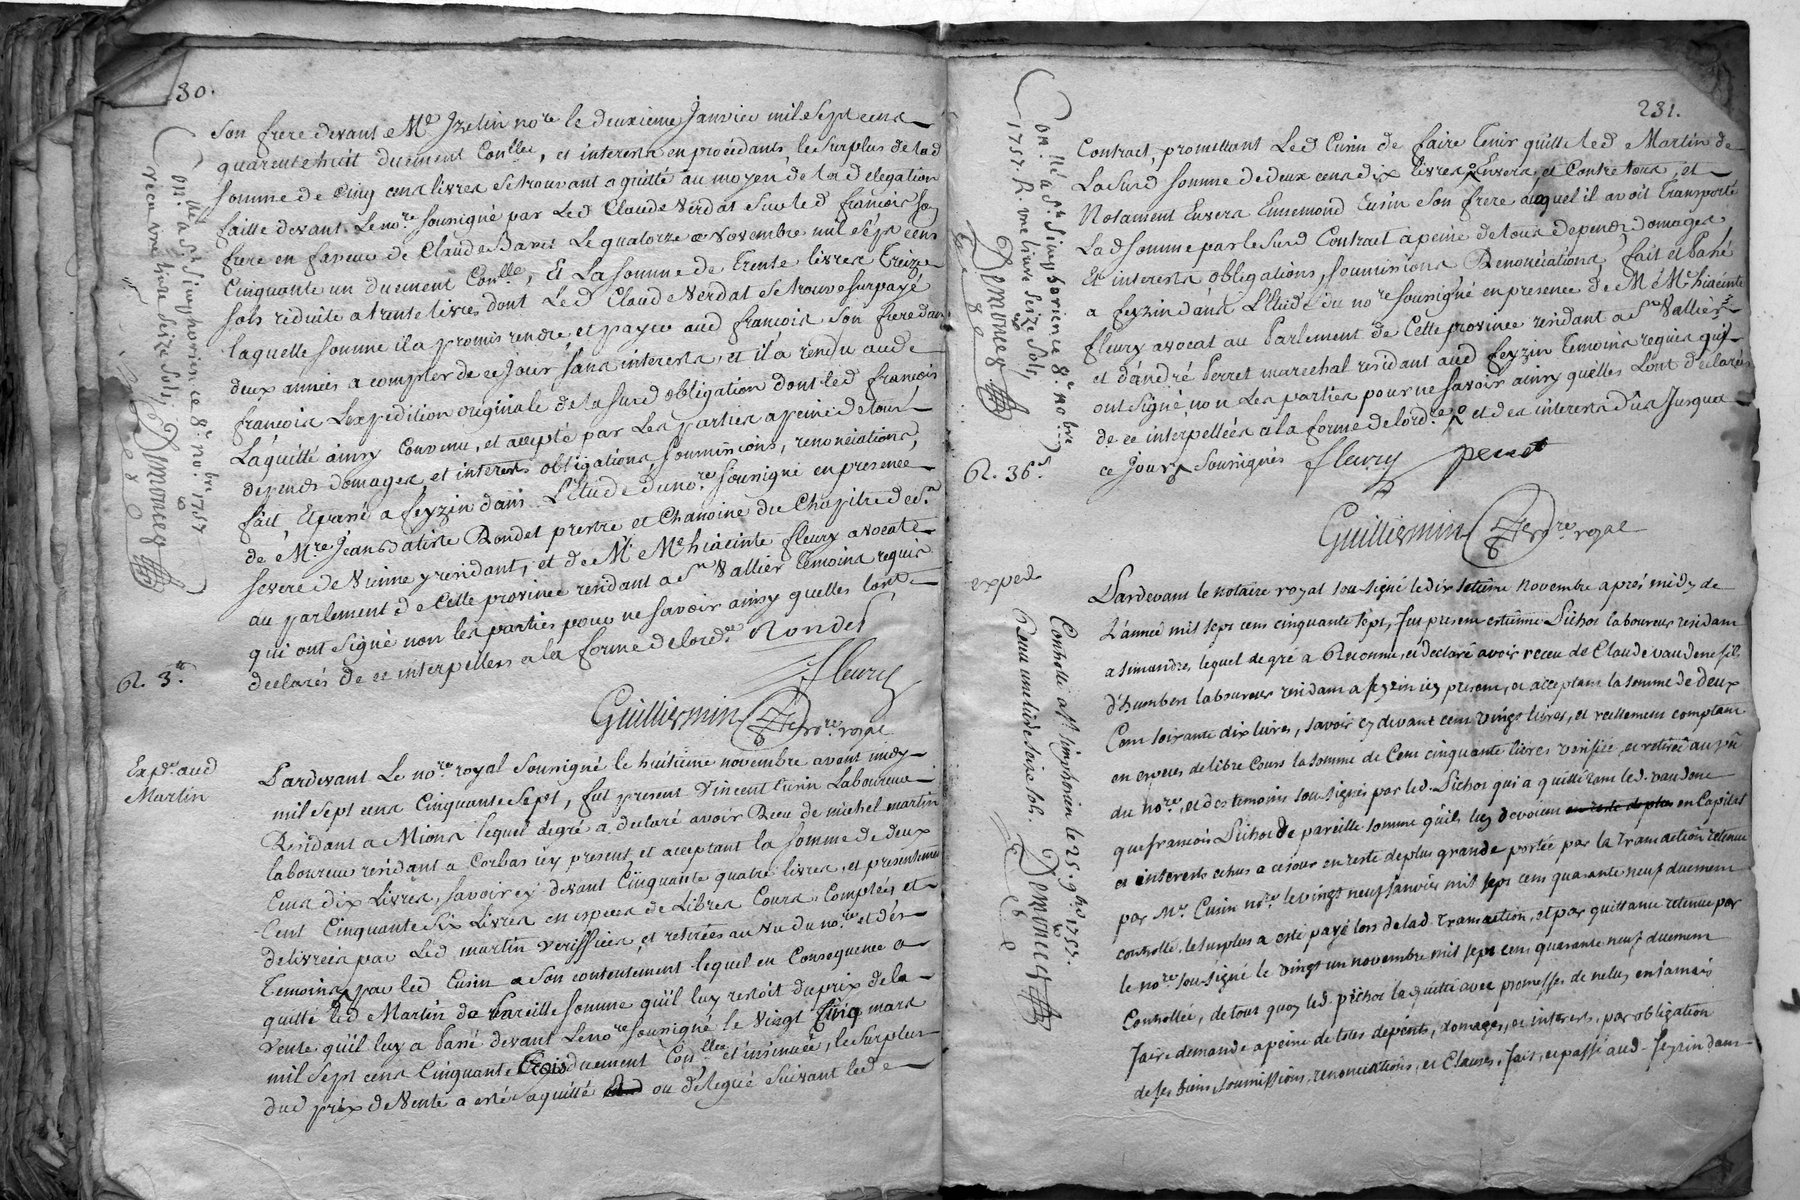 30.
Son frere devant Me Izelin nore le deuxieme Janvier mil Sept cens
quarente huit duement Conllé, et interests en procedants, le surplus de lad
somme de Cinq cens livres se trouvant aquitté au moyen de la delegation
faitte devant Le nore sousigné par Led Claude Verdat sur led françois son
frere en faveur de Claude le quatorze Novembre mil sept cens
Cinquante un duement Conllé, Et La somme de Trente livres Treize
sols reduite a trente livres dont Led Claude Verdat se trouve surpayé
laquelle somme il a promis rendre, et payer aud françois son frere dans
deux années a compter de ce Jour sans interests, et il a rendu aud
françois L'expedition originale de la susd obligation dont led françois
La quitté ainsy Convenu, et accepté par Les parties a peine de tous
depends domages, et interests obligations, soumissions, renonciations,
fait, Et passé a feyzin dans L'Etude du nore sousigné en presence
de Mre Jean Batiste Rondet prestre et Chanoine du Chapitre de St
severe de Vienne y residant, et de Me Me hiacinte fleury avocat
au parlement de Cette province residant a St Vallier Temoins requis
qui ont signé non les parties pour ne savoir ainsy quelles Lont
declarés de ce interpellées a la forme de lordce Rondet
fleury
Guilliermin nore royal
onlle a St Simphorien ce 8e nobre 1757
reçeu une livre seize sols, Demoncez
R. 3lt
Expé aud
Martin
Pardevant Le nore royal Sousigné le huitieme novembre avant midy
mil sept cens Cinquante sept, fut present Vincent Cusin Laboureur
Residant a Mions lequel de gré a declaré avoir Receu de michel martin
laboureur residant a Corbas icy present, et acceptant la somme de deux
Cens dix Livres, savoir cy devant Cinquante quatre livres, et presentement
Cent Cinquante Six Livres en especes de Libres Cours, Comptées, et
delivrées par Led martin veriffiées, et retirées au Vu du nore et des
Temoins par led Cusin a son contentement lequel en Consequence a
quitté led Martin de Pareille somme qu'il luy restoit du prix de la
vente qu'il luy a passé devant Le nore sousigné le Vingt Cinq mars
mil Sept cens Cinquante trois duement Conllée et insinuée, le surplus
dud prix de Vente a esté aquitté ou delegué suivant led
231.
Contract, promettant Led Cusin de faire Tenir quitte led Martin de
La susd somme de deux cens dix livres Envers, et Contre tous, et
Notament Envers Ennemond Cusin son frere auquel il avoit Transporté
Lad somme par le susd Contract a peine de tous depends domages
Et interests obligations, soumissions Renonciations, fait et Passé
a feyzin dans L'Etude du nore sousigné en presence de Me Me hiacinte
fleury avocat au Parlement de Cette province residant a St Vallier
et d'andré Perret marechal residant aud feyzin Temoins requis qui
ont signé non Les parties pour ne savoir ainsy quelles Lont declarés
de ce interpellées a la forme de lordce et des interests dûs Jusqua
ce Jour sousignés fleury perret
Guilliermin nore royal
onllé a St Simphorien ce 8e nobre
1757. R. une livre seize sols,
Demoncez
R. 36s.
exped
Pardevant le notaire royal sousigné le dix septieme novembre aprés midy de
L'année mil sept cens cinquante sept, fut present estienne Pichot laboureur residant
a simandre, lequel de gré a Reconnu, et declaré avoir receu de Claude vaudene fils
d'humbert laboureur residant a feyzin icy present, et acceptant la somme de deux
Cens soixante dix livres, savoir cy devant cent vingt livres, et reellement comptant
en especes de libre Cours la somme de Cent cinquante livres verifiée, et retirée au vu
du nore, et des temoins sousignés par led. Pichot qui a quitté tant led. vaudene
que françois Pichot de pareille somme qu'ils luy devoient en Capital
et interests echus a ce jour en reste de plus grande portée par la Transaction retenue
par Me Cusin nore le vingt neuf Janvier mil sept cens quarante neuf duement
controllé, le surplus a esté payé lors de lad Transaction, et par quittance retenue par
le nore sousigné le vingt un novembre mil sept cens quarante neuf duement
Controllée, de tout quoy led. pichot la quitté avec promesses de nelus en Jamais
faire demande a peine de tous depents, domages, et interests, par obligation
de ses biens, soumissions, renonciations, et Clauses, fait, et passé aud. feyzin dans
Controllé a St simphorien le 25. 9bre 1757.
Receu une livre seize sols. Demoncez